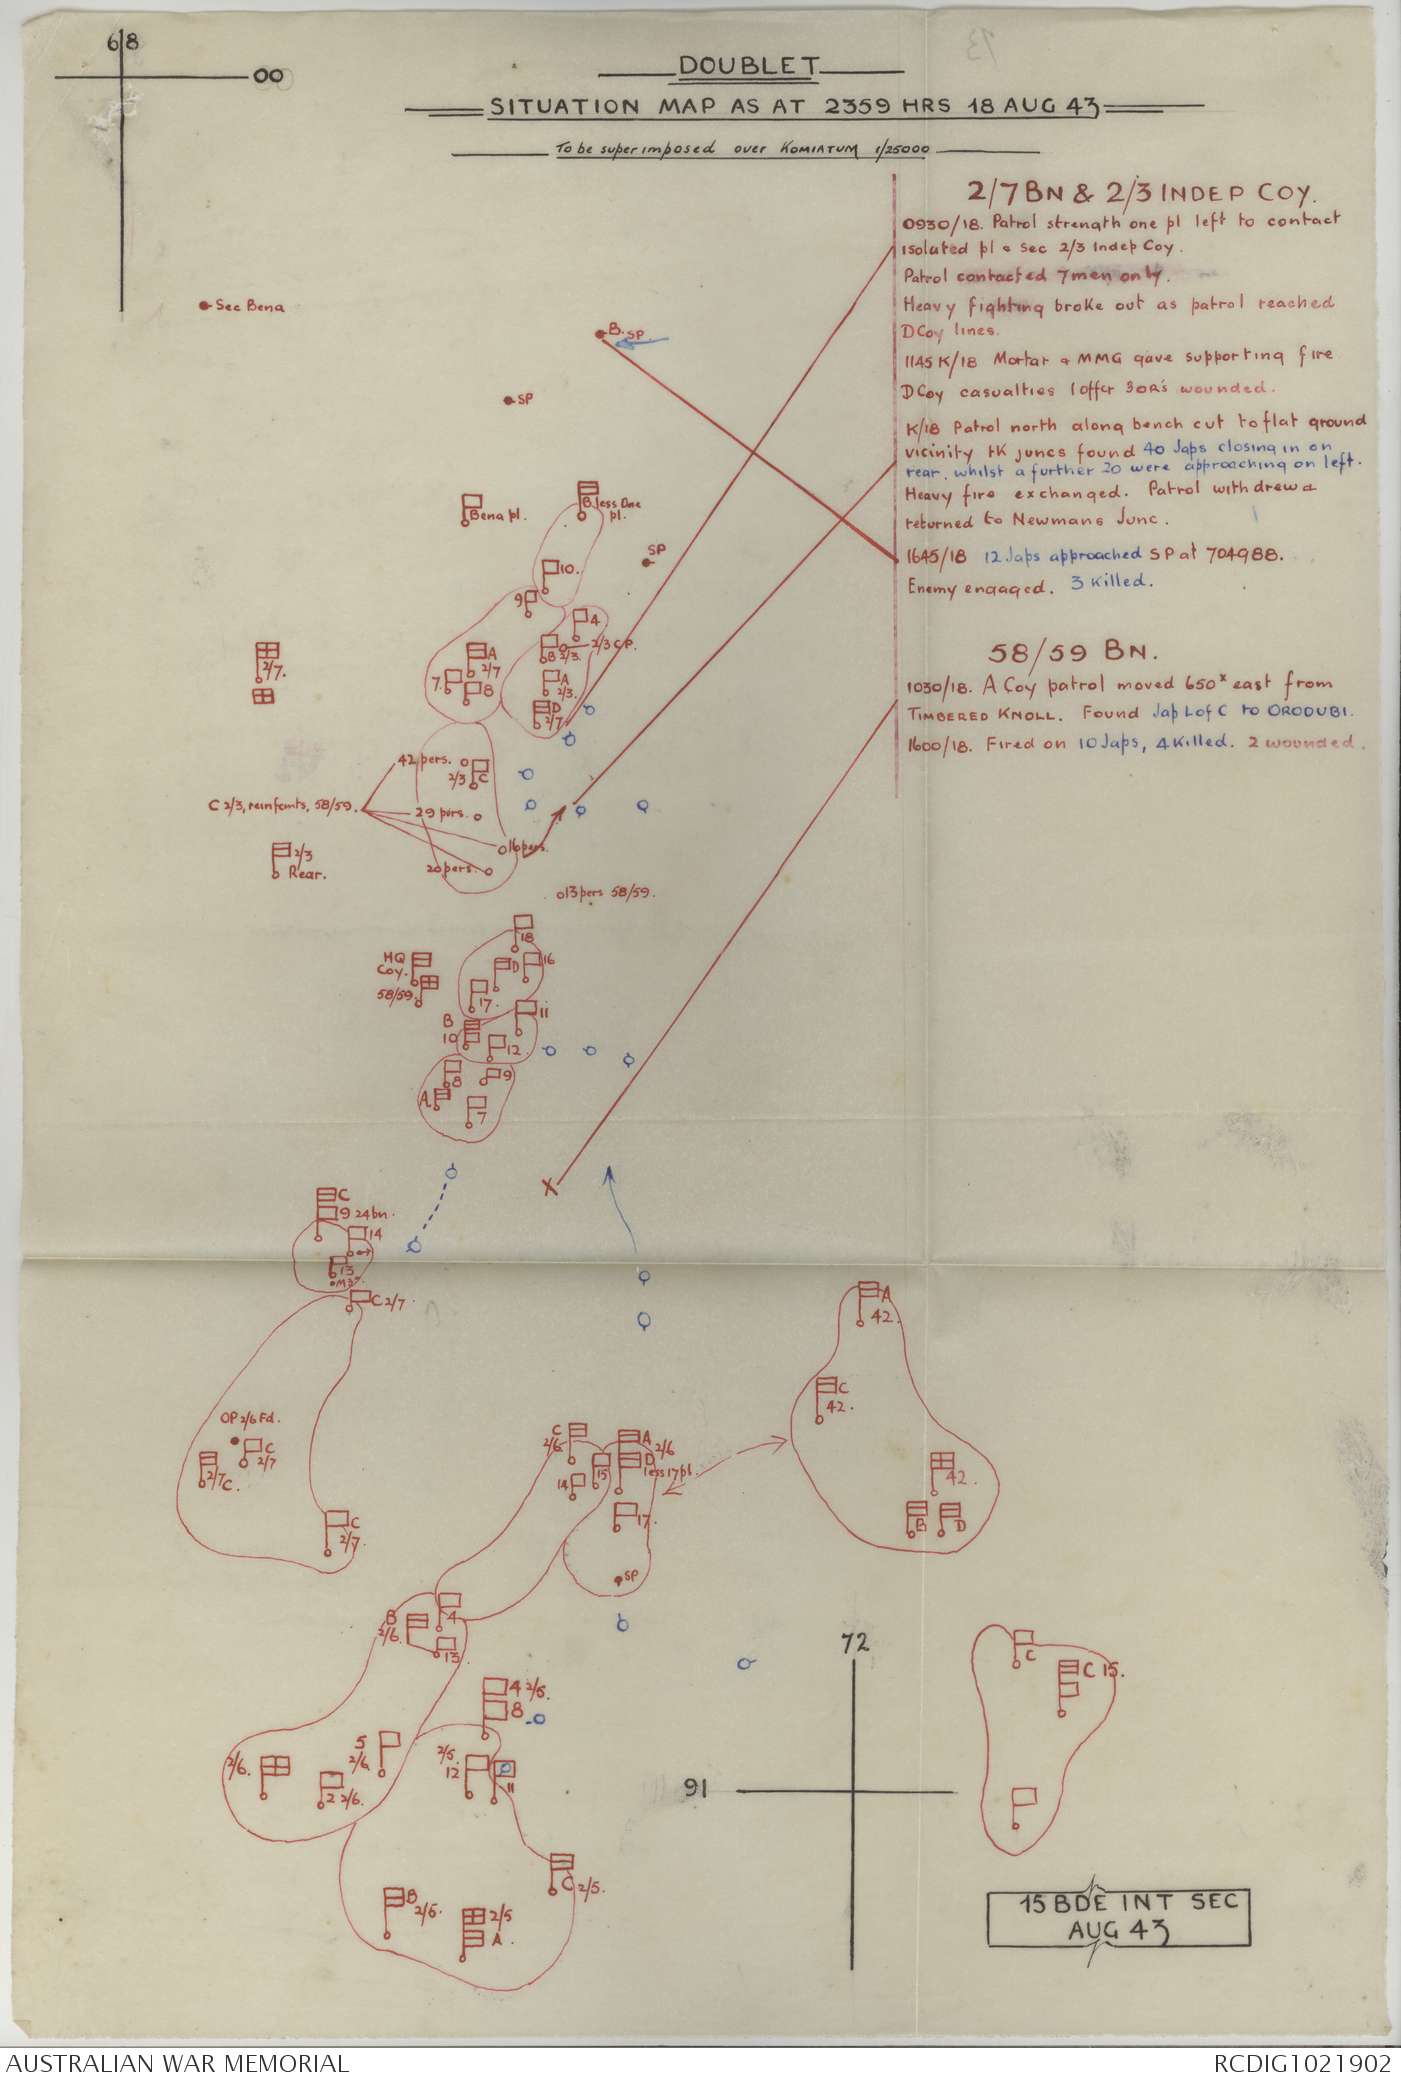 68
00
DOUBLET
SITUATION MAP AS AT 2359 HRS 18 AUG 43
To be superimposed over KOMIATUM 1/25000
2/7 BN & 2/3 INDEP COY.
0930/18. Patrol strength one pl left to contact
isolated pl & Sec 2/3 Indep Coy.
Patrol contacted 7 men only.
Heavy fighting broke out as patrol reached
D Coy lines.
1145 K/18 Mortar & MMG gave supporting fire
D Coy casualties 1 offcr 3 OR's wounded.
K/18 Patrol north along bench cut to flat ground
vicinity tk juncs found 40 Japs closing in on
rear, whilst a further 20 were approaching on left.
Heavy fire exchanged. Patrol withdrew &
returned to Newmans Junc.
1645/18 12 Japs approached SP at 704988.
Enemy engaged. 3 Killed.
58/59 BN.
1030/18. A Coy patrol moved 650ˣ east from
TIMBERED KNOLL. Found Jap L of C to ORODUBI.
1600/18. Fired on 10 Japs, 4 Killed. 2 wounded.
Sec Bena
B. SP.
SP
Bena pl.
B. less One
pl.
SP
10.
9
4
2/3 C P.
B 2/3.
A
2/7
7.
8
A
2/3.
D
2/7
2/7.
42 pers.
2/3 C
C 2/3, reinfcmts, 58/59.
29 pers.
16 pers.
20 pers.
2/3
Rear.
13 pers 58/59.
18
HQ
Coy.
58/59.
D
16
17.
11
B
10
12
8
9
A
7
C
9 24 bn.
14
13
M.D.
C 2/7.
A
42.
C
42.
OP 2/6 Fd.
C
2/7
2/7 C.
C
2/7.
C
2/6
A
2/6
D
less 17 pl.
14
15
17.
SP
42.
B
D
B
2/6.
4
13
72
91
C
C 15.
4 2/5.
8
5
2/6.
2/6.
2 2/6.
2/5.
12
11
C 2/5.
B
2/5.
2/5
A.
15 BDE INT SEC
AUG 43
AUSTRALIAN WAR MEMORIAL
RCDIG1021902